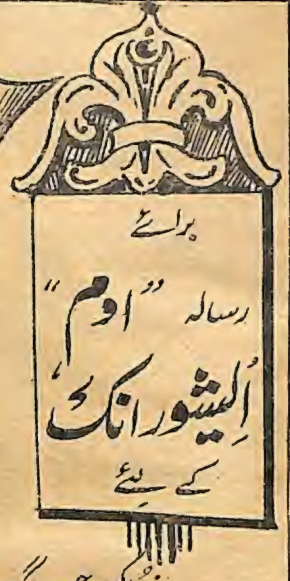 برائے
رسالہ "اوم"
اِیشور انک
کے لئے